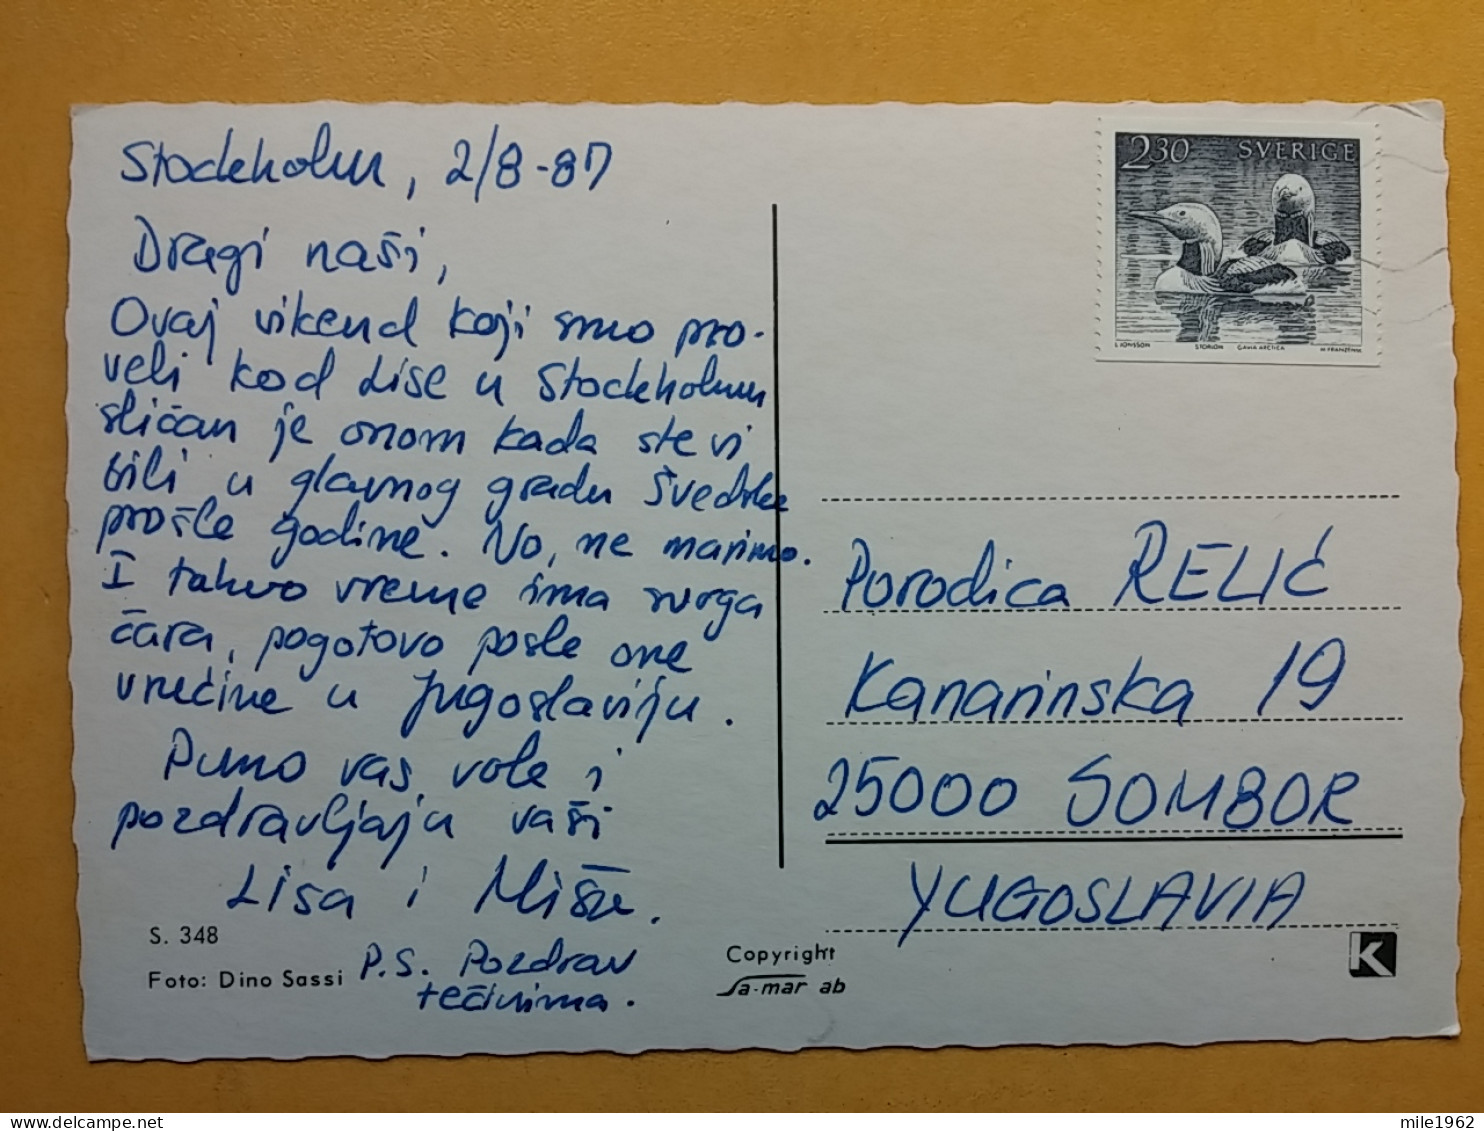 Stockholm, 2/8-87
Dragi naši,
Ovaj vikend koji smo pro-
veli kod Lise u Stockholmu
sličan je onom kada ste vi
bili u glavnog gradu Švedske
prošle godine. No, ne marimo.
I takvo vreme ima svoga
čara, pogotovo posle one
vrućine u Jugoslaviju.
Puno vas vole i
pozdravljaju vaši
Lisa i Miša.
P.S. Pozdrav
tečinima.
S. 348
Foto: Dino Sassi
Copyright
Sa-mar ab
2.30 SVERIGE
L JONSSON STORLOM GAVIA ARCTICA M FRANZÉN SC
Porodica RELIĆ
Kanarinska 19
25000 SOMBOR
YUGOSLAVIA
K
mile1962